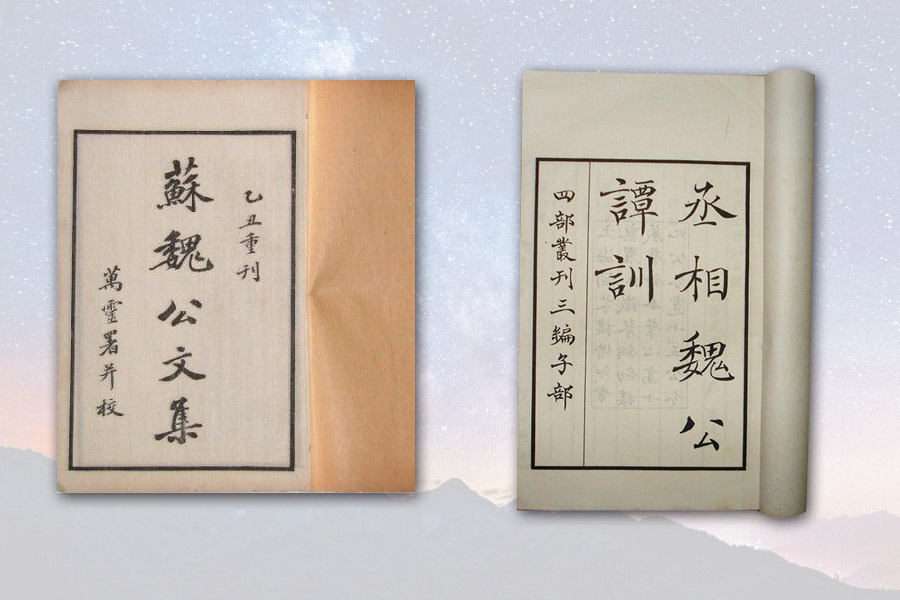 乙丑重刊
蘇魏公文集
萬靈署并校
丞相魏公
譚訓
四部叢刊三編子部